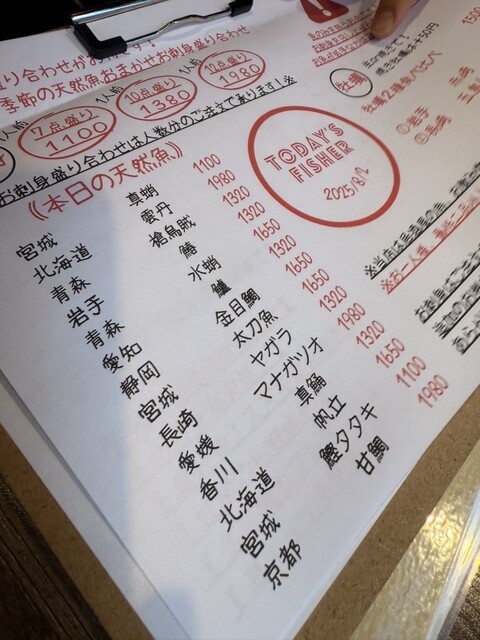 盛り合わせがお得です!
季節の天然魚おまかせお刺身盛り合わせ
7点盛り 1100
1人前 10点盛り 1380
1人前 13点盛り 1980
お刺身盛り合わせは人数分のご注文であります!※
《本日の天然魚》
TODAY'S
FISHER
2025/8/2
宮城 真蛸 1100
北海道 雲丹 1980
青森 槍烏賊 1320
岩手 鰆 1320
青森 水蛸 1650
愛知 鱸 1320
静岡 金目鯛 1650
宮城 太刀魚 1650
長崎 ヤガラ 1320
愛媛 マナガツオ 1980
香川 真鯒 1320
北海道 帆立 1650
宮城 鰹タタキ 1100
京都 甘鯛 1980
牡蠣
牡蠣2種食べ比べ
①岩手
②長崎